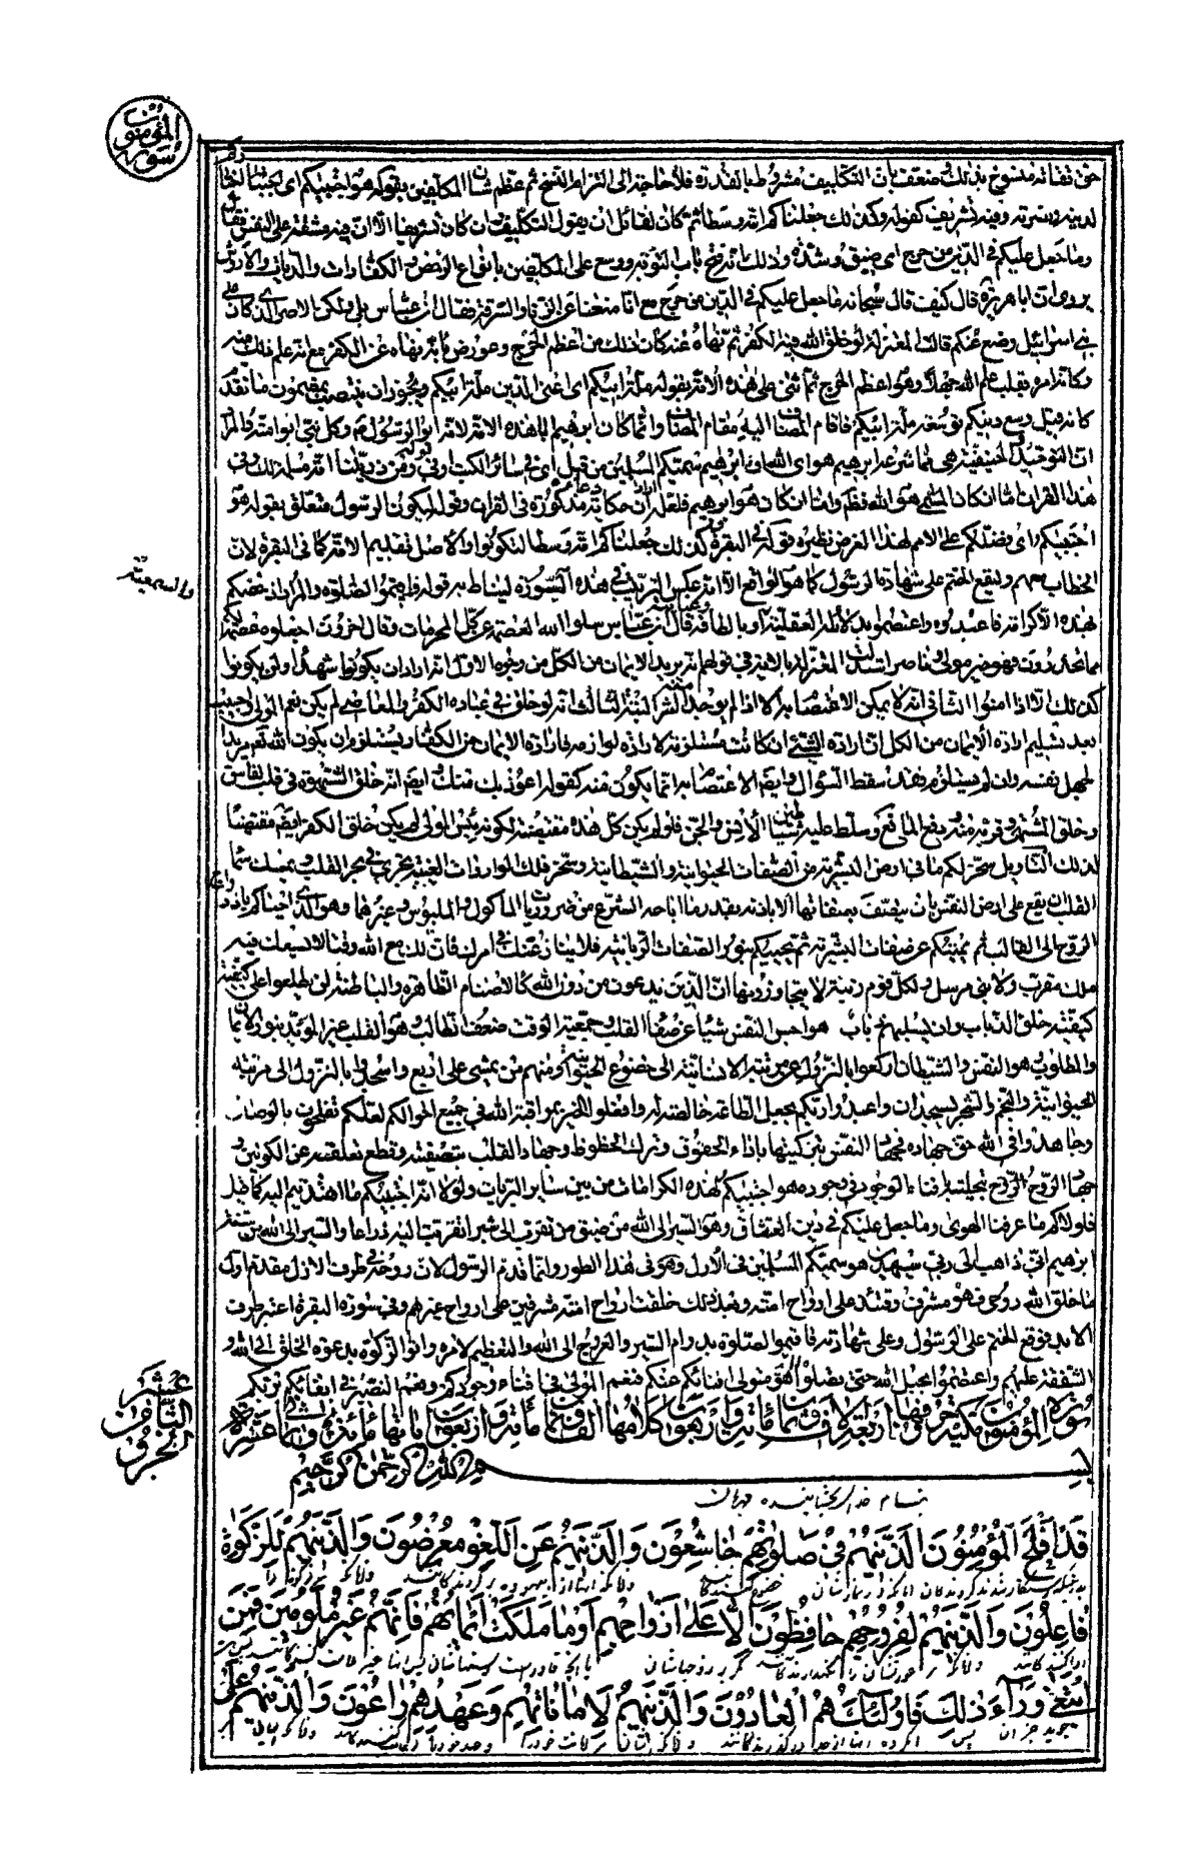 سورة المؤمنون
حق تقاته منسوخ بذلك وضعف بان التكليف مشروط بالقدرة فلا حاجة الى التزام النسخ ثم عظم شان المكلفين بقوله هو اجتبيكم اى اختاركم
لدينه ونصرته وفيه تشريف كقوله وكذلك جعلناكم امة وسطا ثم كان لقائل ان يقول التكليف وان كان تشريفا الا ان فيه مشقة على النفس فقال
وما جعل عليكم في الدين من حرج اى ضيق وشدة وذلك انه فتح باب التوبة ووسع على المكلفين بانواع الرخص والكفارات والديات والاروش
يروى ان ابا هريرة قال كيف قال سبحانه ما جعل عليكم في الدين من حرج مع انا منعنا عن الزنا والسرقة فقال ابن عباس بلى ولكن الاصر الذى كان على
بنى اسرائيل وضع عنكم قالت المعتزلة لو خلق الله فيه الكفر ثم نهاه عنه كان ذلك من اعظم الحرج وعورض بانه نهاه عن الكفر مع انه علم ذلك منه
وكانه امره بقلب علم الله جهلا وهو اعظم الحرج ثم اثنى على هذه الامة بقوله ملة ابيكم اى اعنى الدين ملة ابيكم ويجوز ان ينتصب بمضمون ما تقدم
كانه قيل وسع دينكم توسعة ملة ابيكم فاقام المضاف اليه مقام المضاف وانما كان ابرهيم ابا هذه الامة لانه ابو الرسول وكل نبي ابو امته والمراد
ان التوحيد والحنيفية هى مما شرعه ابرهيم هو اى الله او ابرهيم سميكم المسلمين من قبل اى في سائر الكتب او في قوله ومن ذريتنا امة مسلمة لك وفي
هذا القران اما ان كان المسمى هو الله فظ واما ان كان هو ابرهيم فلعله اراد ان حكاية دعائه مذكورة في القران وقوله ليكون الرسول متعلق بقوله هو
اجتبيكم اى فضلكم على الامم لهذا الغرض نظيره قوله في البقرة وكذلك جعلناكم امة وسطا لتكونوا والاصل تقديم الامة كما في البقرة لان
الخطاب معهم وليقع الختم على شهادة الرسول كما هو الواقع الا انه عكس الترتيب في هذه السورة ليناط به قوله فاقيموا الصلوة والمراد اذ خصكم
بهذه الكرامة فاعبدوه واعتصموا بدلائله العقلية
والسمعية
او بالطافه قال ابن عباس سلوا الله العصمة عن كل المحرمات وقال اخرون اجعلوه عصمة لكم
مما تحذرون فهو خير مولى وناصر استدلت المعتزلة بالاية في قولهم انه يريد الايمان من الكل من وجوه الاول انه اراد ان يكونوا شهداء ولن يكونوا
كذلك الا اذا امنوا الثانى انه لا يمكن الاعتصام به الا اذا لم يوجد منه الشر البتة الثالث انه لو خلق في عباده الكفر والمعاصى لم يكن نعم المولى اجيب
بعد تسليم ارادة الايمان من الكل ان ارادة الشئ ان كانت مستلزمة لارادة لوازمه فارادة الايمان من الكفار يستلزم ان يكون الله تعالى مريدا
لجهل نفسه وان لم يستلزم فقد سقط السؤال وايضا الاعتصام به انما يكون منه كقوله اعوذ بك منك وايضا انه خلق الشهوة في قلب الفاسق
وخلق المشتهى وقربه منه ورفع المانع وسلط عليه شياطين الانس والجن فلو لم يكن كل هذه مقتضية لكونه بئس المولى لم يكن خلق الكفر ايضا مقتضيا
لذلك التاويل سخر لكم ما في ارض البشرية من الصفات الحيوانية والشيطانية وسخر فلك الواردات الغيبية تجرى في بحر القلب ويمسك سماء
القلب ان يقع على ارض النفس بان يتصف بصفاتها الا باذنه بقدر ما اباحه الشرع من ضروريات الماكول والملبوس وغيرهما وهو الذى احياكم بازدواج
الروح الى القالب ثم يميتكم عن صفات البشرية ثم يحييكم بنور الصفات الربانية فلا ينازعنك في امرك فان لك مع الله وقتا لا يسعك فيه
ملك مقرب ولا نبى مرسل ولكل قوم رتبة لا يتجاوزونها ان الذين يدعون من دون الله كالاصنام الظاهرة والباطنة لن يطلعوا على كيفية
كيفية خلق الذباب وان يسلبهم ذباب هو احس النفس شيئا عن صفاء القلب وجمعية الوقت ضعف الطالب هو القلب غير المؤيد بنور الايمان
والمطلوب هو النفس والشيطان اركعوا بالنزول عن مرتبة الانسانية الى خضوع الحيوانية ومنهم من يمشى على اربع واسجدوا بالنزول الى مرتبة
الحيوانية والنجم والشجر يسجدان واعبدوا ربكم بجعل الطاعة خالصة له وافعلوا الخير بمراقبة الله في جميع احوالكم لعلكم تفلحون بالوصال
وجاهدوا في الله حق جهاده فجهاد النفس تزكيتها باداء الحقوق وترك الحظوظ وجهاد القلب بتصفيته وقطع تعلقه عن الكونين
وجهاد الروح بافناء الوجود في وجوده هو اجتبيكم لهذه الكرامات من بين سائر البريات ولولا انه اجتبيكم ما اهتديتم اليه كما قيل
فلولاكم ما عرفنا الهوى وما جعل عليكم في دين العشاق وهو السير الى الله من ضيق من تقرب الى شبرا تقربت اليه ذراعا والسير الى الله من سنة
ابرهيم انى ذاهب الى ربى سيهدين هو سميكم المسلمين في الازل وهو في هذا الطور وانما قدم الرسول لان روحه في طرف الازل مقدم اول
ما خلق الله روحى فهو مشرف وقتئذ على ارواح امته وبعد ذلك خلقت ارواح امته مشرفين على ارواح غيرهم وفى سورة البقرة اعتبر طرف
الابد فوقع الختم على الرسول وعلى شهادته فاقيموا الصلوة بدوام السير والعروج الى الله والتعظيم لامره واتوا الزكوة بدعوة الخلق الى الله و
الشفقة عليهم واعتصموا بحبل الله حتى تصلوا اليه هو متولى افنائكم عنكم فنعم المولى في افناء وجودكم ونعم النصير في ابقائكم بربكم
سورة المؤمنون مكية حروفها اربعة الاف وثمان مائة واثنان كلامها الف وثمان مائة واربعون اياتها مائة وثمانى عشرة
الجزؤ الثامن عشر
بسم الله الرحمن الرحيم
بنام خداى بخشاينده مهربان
قَدْ اَفْلَحَ الْمُؤْمِنُونَ الَّذِينَ هُمْ فِي صَلَاتِهِمْ خَاشِعُونَ وَالَّذِينَ هُمْ عَنِ اللَّغْوِ مُعْرِضُونَ وَالَّذِينَ هُمْ لِلزَّكَوٰةِ
فَاعِلُونَ وَالَّذِينَ هُمْ لِفُرُوجِهِمْ حَافِظُونَ اِلَّا عَلَىٰ اَزْوَاجِهِمْ اَوْ مَا مَلَكَتْ اَيْمَانُهُمْ فَاِنَّهُمْ غَيْرُ مَلُومِينَ فَمَنِ
ابْتَغَىٰ وَرَاءَ ذٰلِكَ فَاُولٰئِكَ هُمُ الْعَادُونَ وَالَّذِينَ هُمْ لِاَمَانَاتِهِمْ وَعَهْدِهِمْ رَاعُونَ وَالَّذِينَ هُمْ عَلَىٰ